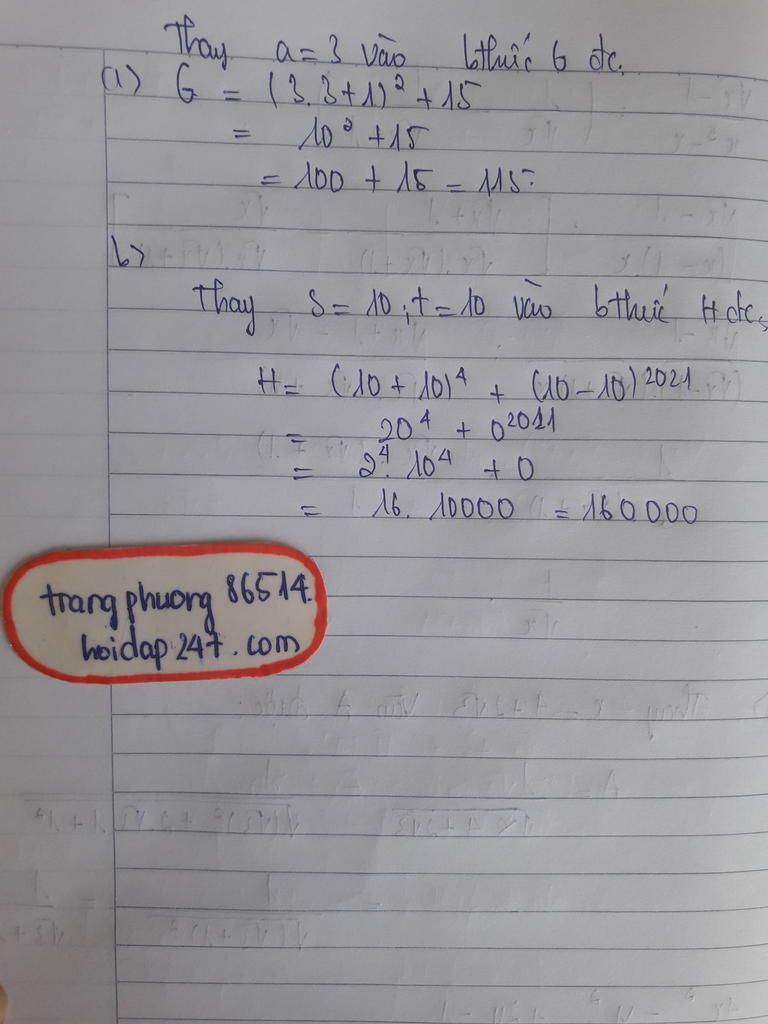 Thay a = 3 vào bthức G đc.
a) G = (3.3+1)² + 15
= 10² + 15
= 100 + 15 = 115.
b)
Thay S = 10 ; t = 10 vào bthức H đc,
H = (10 + 10)⁴ + (10 - 10)²⁰²¹
= 20⁴ + 0²⁰²¹
= 2⁴. 10⁴ + 0
= 16. 10000 = 160000
trangphuong 86514.
hoidap247.com